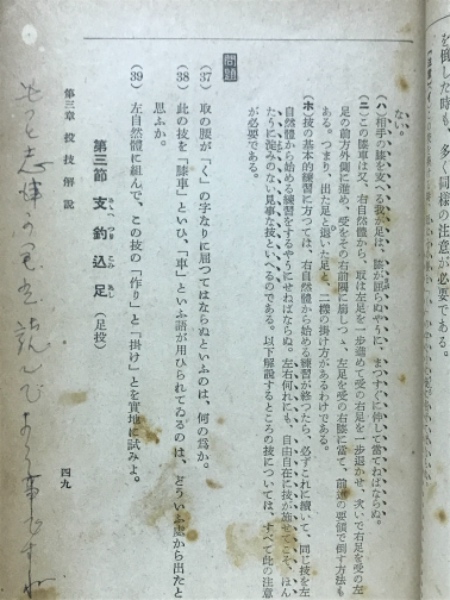 を倒した時も、多く同様の注意が必要である。
ない。
(ハ) 相手の膝を支へる我が足は、膝が屈らぬやうに、まつすぐに伸して當てねばならぬ。
(ニ) この膝車は又、右自然體から、取は左足を一歩進めて受の右足を一歩退かせ、次いで右足を受の左
足の前方外側に進め、受をその右前隅に崩しつゝ、左足を受の右膝に當て、前進の要領で倒す方法も
ある。つまり、出た足と退いた足と、二樣の掛け方があるわけである。
(ホ) 技の基本的練習に方つては、右自然體から始める練習が終つたら、必ずこれに續いて、同じ技を左
自然體から始める練習をするやうにせねばならぬ。左右何れにも、自由自在に技が施せてこそ、ほん
たうに淀みのない見事な技といへるのである。以下解說するところの技については、すべて此の注意
が必要である。
問題
(37) 取の腰が「く」の字なりに屈つてはならぬといふのは、何の爲か。
(38) 此の技を「膝車」といひ、「車」といふ語が用ひられてゐるのは、どういふ處から出たと
思ふか。
(39) 左自然體に組んで、この技の「作り」と「掛け」とを實地に試みよ。
第三節 支釣込足 (足技)
さゝへ つり こみ あし
第三章 投技解說
四九